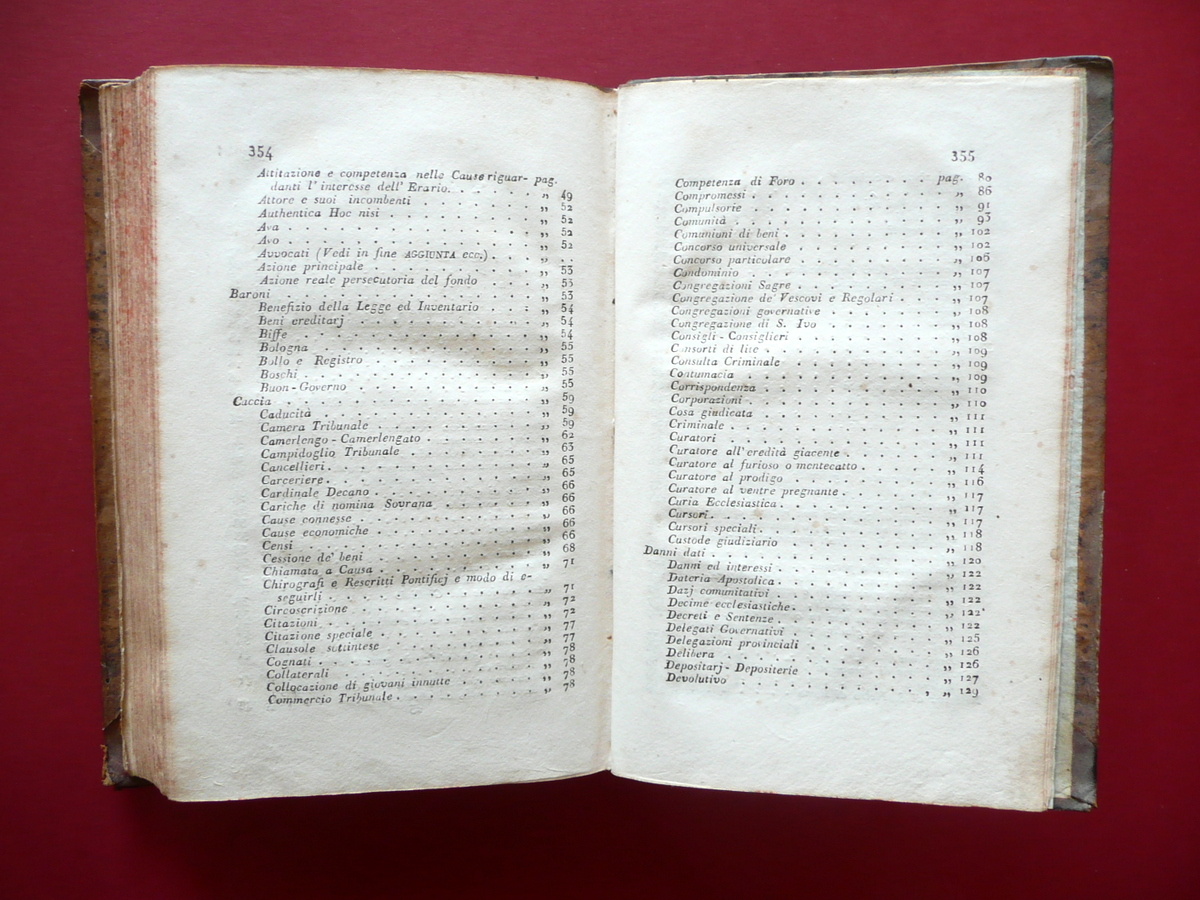 354
Attitazione e competenza nelle Cause riguar- pag.
danti l' interesse dell' Erario. . . . . . . „ 49
Attore e suoi incombenti . . . . . . . „ 52
Authentica Hoc nisi . . . . . . . . „ 52
Ava . . . . . . . . . . . „ 52
Avo . . . . . . . . . . . „ 52
Avvocati (Vedi in fine AGGIUNTA ecc.) . . . „ . .
Azione principale . . . . . . . . „ 53
Azione reale persecutoria del fondo . . . . „ 53
Baroni . . . . . . . . . . . „ 53
Benefizio della Legge ed Inventario . . . . „ 54
Beni ereditarj . . . . . . . . . „ 54
Biffe . . . . . . . . . . . „ 54
Bologna . . . . . . . . . . „ 55
Bollo e Registro . . . . . . . . „ 55
Boschi . . . . . . . . . . „ 55
Buon-Governo . . . . . . . . . „ 55
Caccia . . . . . . . . . . . „ 59
Caducità . . . . . . . . . . „ 59
Camera Tribunale . . . . . . . . „ 59
Camerlengo - Camerlengato . . . . . . „ 62
Campidoglio Tribunale . . . . . . . „ 63
Cancellieri. . . . . . . . . . „ 65
Carceriere. . . . . . . . . . „ 65
Cardinale Decano . . . . . . . . „ 66
Cariche di nomina Sovrana . . . . . . „ 66
Cause connesse . . . . . . . . „ 66
Cause economiche . . . . . . . . „ 66
Censi . . . . . . . . . . . „ 66
Cessione de' beni . . . . . . . . „ 68
Chiamata a Causa . . . . . . . . „ 71
Chirografi e Rescritti Pontificj e modo di e-
seguirli . . . . . . . . . . „ 71
Circoscrizione . . . . . . . . . „ 72
Citazioni . . . . . . . . . . „ 72
Citazione speciale . . . . . . . . „ 77
Clausole sottintese . . . . . . . . „ 77
Cognati . . . . . . . . . . „ 78
Collaterali . . . . . . . . . . „ 78
Collocazione di giovani innutte . . . . . „ 78
Commercio Tribunale . . . . . . . . „ 78
355
Competenza di Foro . . . . . . . pag. 80
Compromessi . . . . . . . . . „ 86
Compulsorie . . . . . . . . . „ 91
Comunità . . . . . . . . . . „ 93
Comunioni di beni . . . . . . . . „ 102
Concorso universale . . . . . . . „ 102
Concorso particolare . . . . . . . „ 106
Condominio . . . . . . . . . „ 107
Congregazioni Sagre . . . . . . . „ 107
Congregazione de' Vescovi e Regolari . . . . „ 107
Congregazioni governative . . . . . . „ 108
Congregazione di S. Ivo . . . . . . „ 108
Consigli - Consiglieri . . . . . . . „ 108
Consorti di lite . . . . . . . . „ 109
Consulta Criminale . . . . . . . „ 109
Contumacia . . . . . . . . . „ 109
Corrispondenza . . . . . . . . „ 110
Corporazioni . . . . . . . . . „ 110
Cosa giudicata . . . . . . . . „ 111
Criminale . . . . . . . . . „ 111
Curatori . . . . . . . . . . „ 111
Curatore all' eredità giacente . . . . . „ 111
Curatore al furioso o mentecatto . . . . „ 114
Curatore al prodigo . . . . . . . „ 116
Curatore al ventre pregnante . . . . . . „ 117
Curia Ecclesiastica . . . . . . . . „ 117
Cursori. . . . . . . . . . . „ 117
Cursori speciali . . . . . . . . „ 118
Custode giudiziario . . . . . . . „ 118
Danni dati . . . . . . . . . . „ 120
Danni ed interessi . . . . . . . . „ 122
Dateria Apostolica . . . . . . . . „ 122
Dazj comunitativi . . . . . . . . „ 122
Decime ecclesiastiche . . . . . . . „ 122
Decreti e Sentenze . . . . . . . . „ 122
Delegati Governativi . . . . . . . „ 125
Delegazioni provinciali . . . . . . . „ 126
Delibera . . . . . . . . . . „ 126
Depositarj - Depositerie . . . . . . . „ 127
Devolutivo . . . . . . . . . „ 129